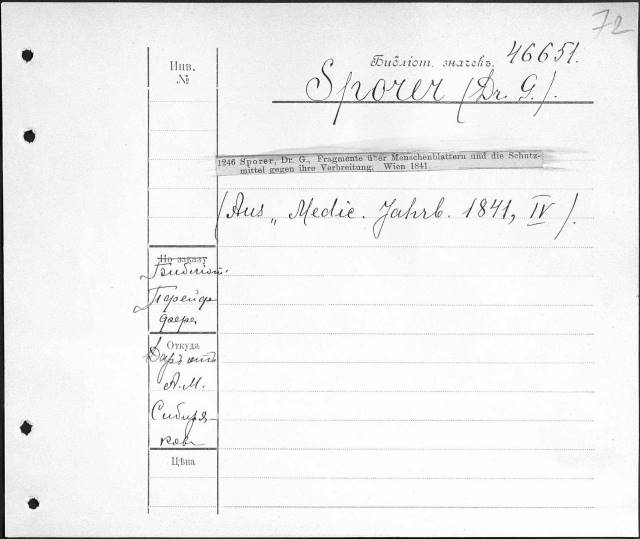 72
Инв.
№
Библіот. значекъ. 46651.
Sporer (Dr. G.).
1246 Sporer, Dr. G., Fragmente über Menschenblattern und die Schutz-
mittel gegen ihre Verbreitung. Wien 1841.
(Aus „ Medic. Jahrb. 1841, IV).
По заказу
Библіот.
Порейфр
Откуда
Даръ отъ
А. М.
Сибиря-
кова
Цѣна